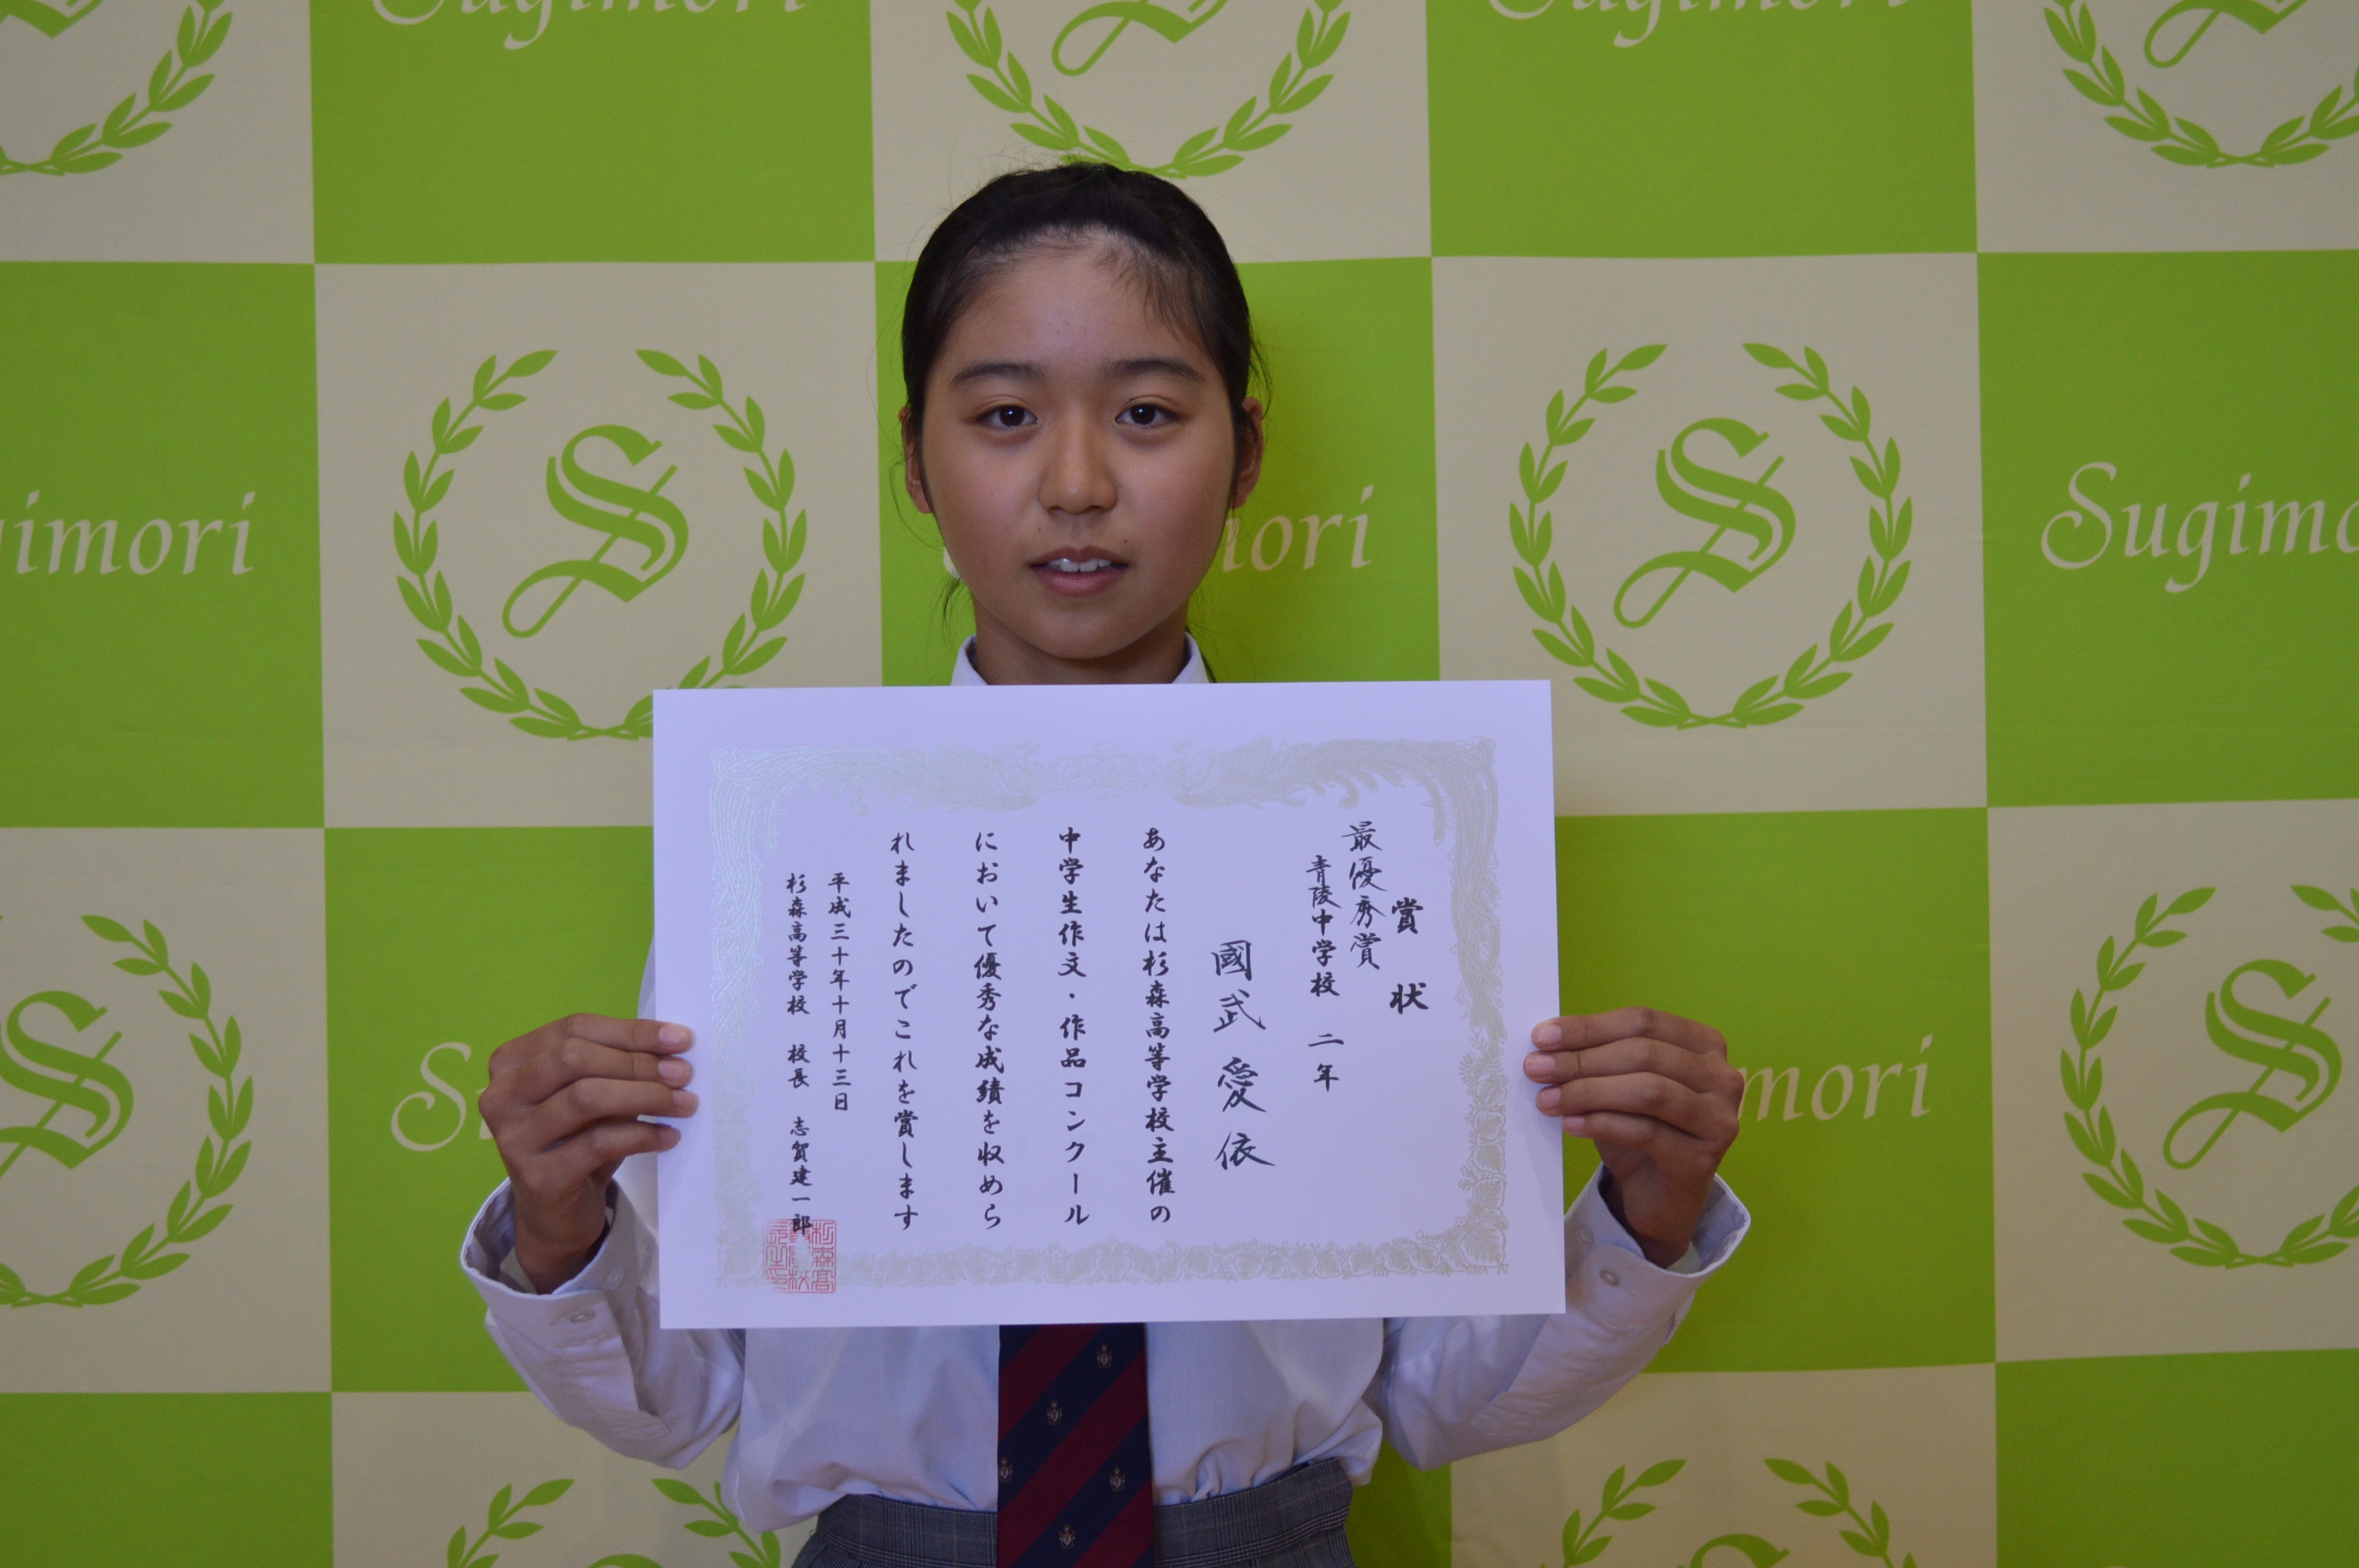 賞状
最優秀賞
青陵中学校 二年
國武愛依
あなたは杉森高等学校主催の
中学生作文・作品コンクール
において優秀な成績を収めら
れましたのでこれを賞します
平成三十年十月十三日
杉森高等学校 校長 志賀建一郎
Sugimori
Sugimori
gimori
S
nori
S
Sugimo
S
S
mori
S